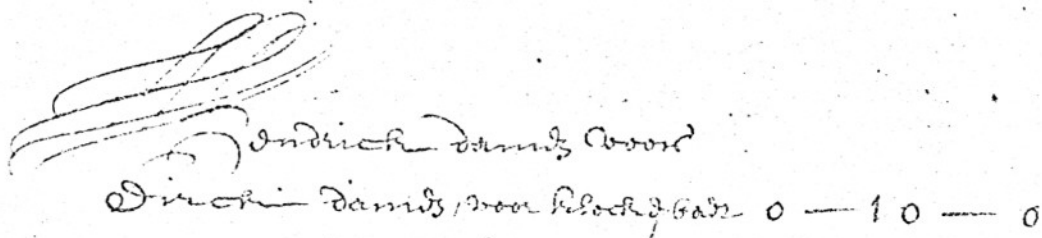 Hendrick Daniels voor
Dirck Daniels, voor klock & baer 0 — 10 — 0